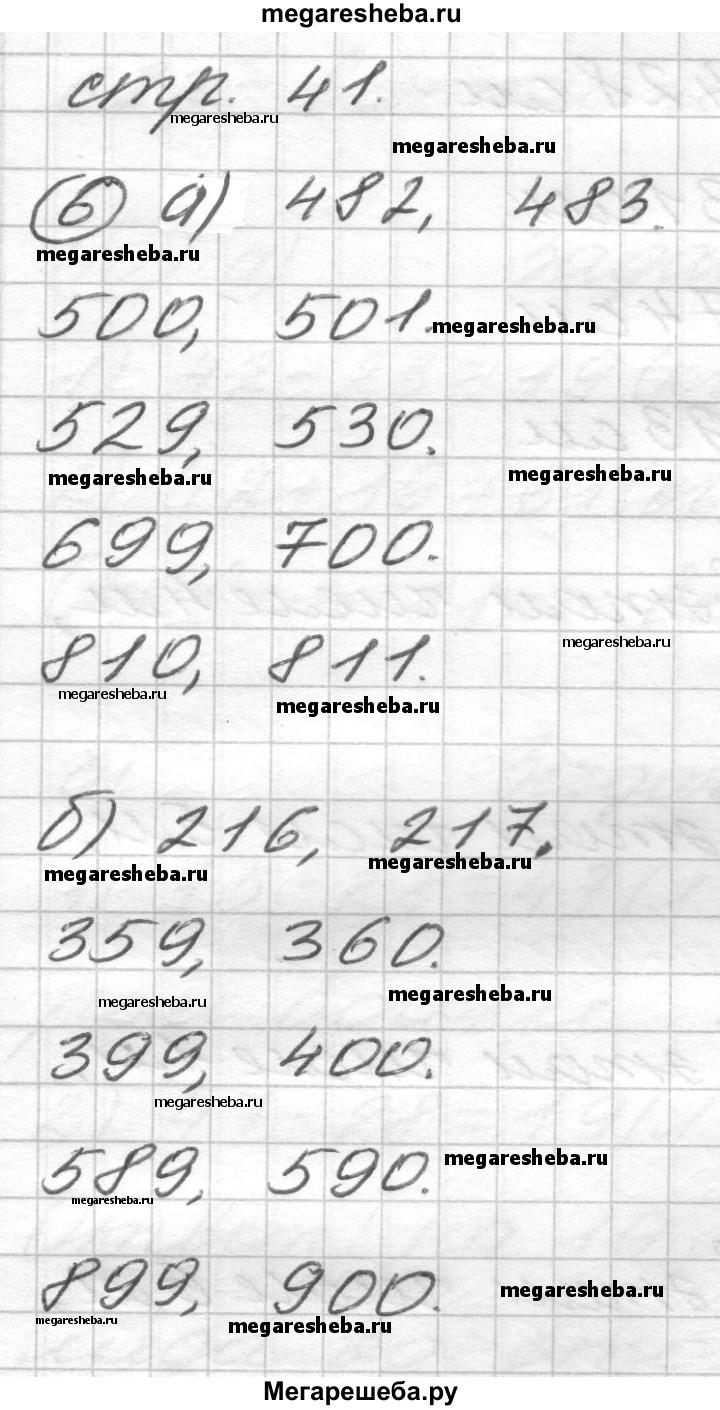 megaresheba.ru
стр. 41.
megaresheba.ru
megaresheba.ru
6 а) 482, 483.
megaresheba.ru
500, 501.
megaresheba.ru
529, 530.
megaresheba.ru megaresheba.ru
699, 700.
megaresheba.ru
810, 811.
megaresheba.ru
megaresheba.ru
б) 216, 217.
megaresheba.ru megaresheba.ru
359, 360.
megaresheba.ru megaresheba.ru
399, 400.
megaresheba.ru
589, 590.
megaresheba.ru
megaresheba.ru
899, 900.
megaresheba.ru
megaresheba.ru megaresheba.ru
Мегарешеба.ру